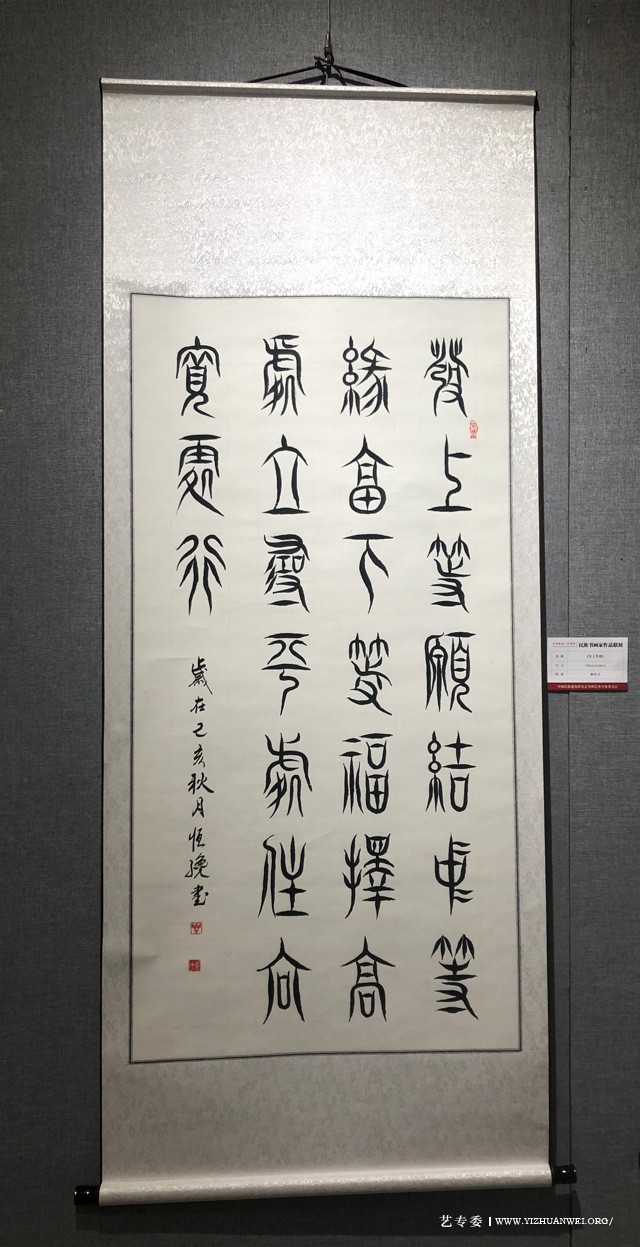 發上等願結中等
緣享下等福擇高
處立尋平處住向
寬處行
歲在己亥秋月恒書
民族书画家作品联展
艺专委 | WWW.YIZHUANWEI.ORG/